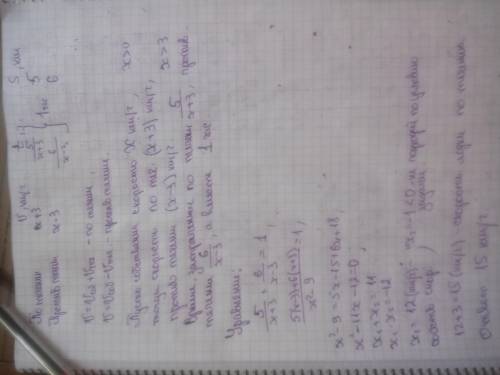 V, км/ч t, ч S, км
По течению x+3 5/(x+3) } 1 час 5
Против течен. x-3 6/(x-3) 6
V = Vсоб + Vтеч - по течен.,
V = Vсоб - Vтеч - против течен.
Пусть собственная скорость x км/ч, x>0
тогда скорость по теч. (x+3) км/ч,
против течения (x-3) км/ч. x>3
Время, затраченное по течению 5/(x+3), против
течения 6/(x-3), а вместе 1 час.
Уравнение:
5/(x+3) + 6/(x-3) = 1
(5(x-3)+6(x+3))/(x²-9) = 1,
x²-9 = 5x-15+6x+18,
x²-11x-12=0
x₁+x₂ = 11
x₁·x₂ = -12
x₁ = 12 (км/ч) - x₂ = -1 < 0 - не подходит по условию
собств. скор. задачи
12+3 = 15 (км/ч) - скорость лодки по течению
Ответ: 15 км/ч